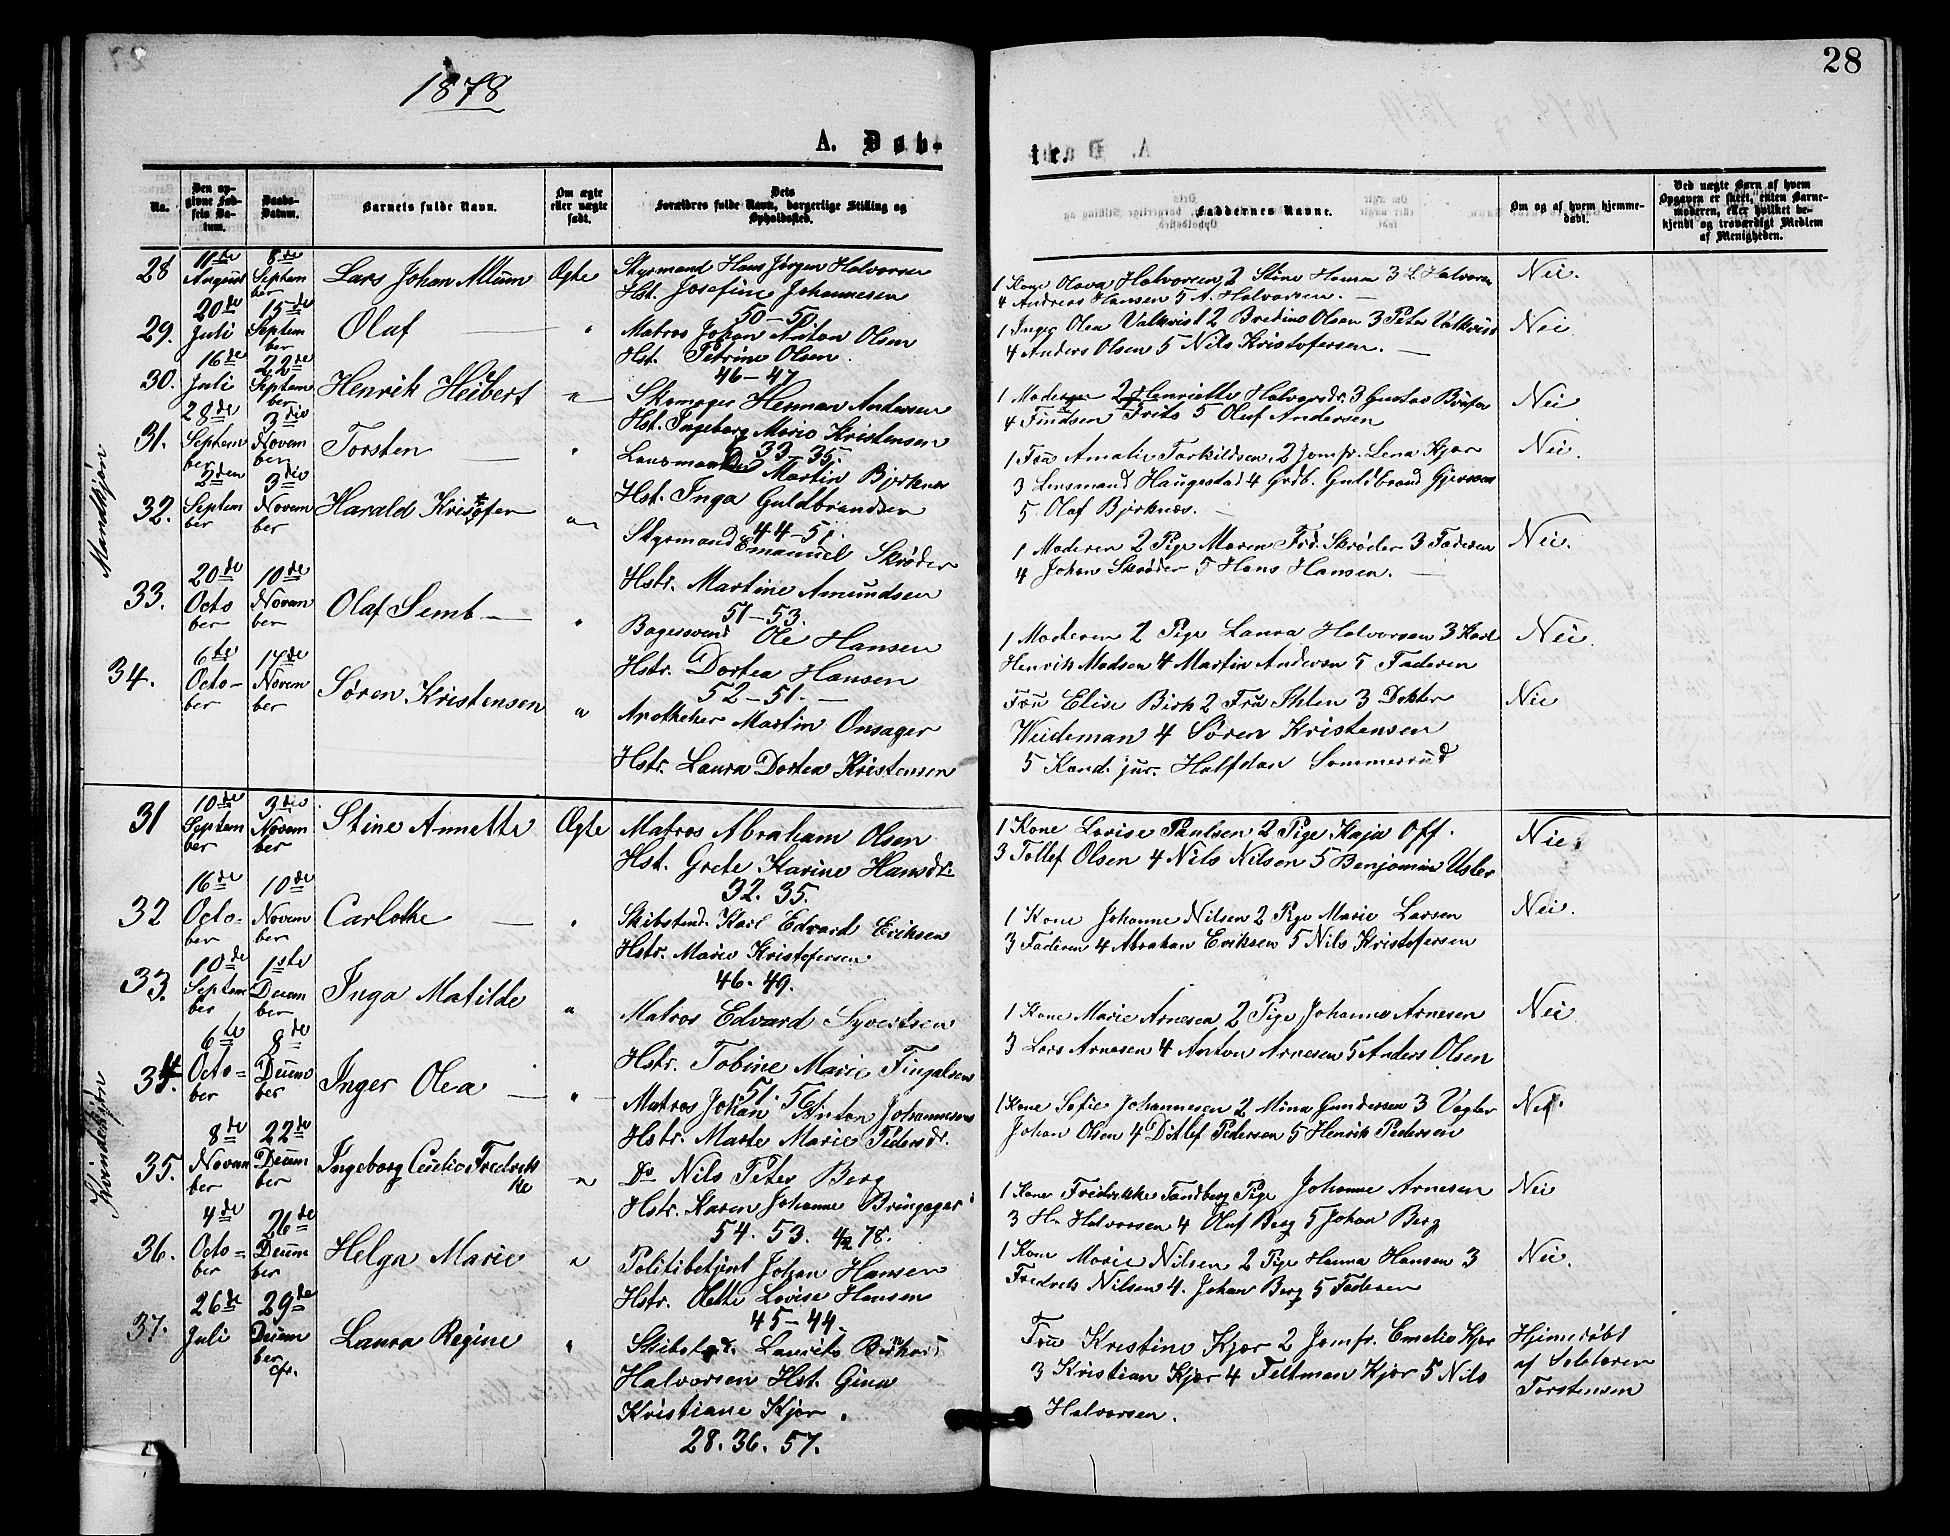 28
1878
A. Døb-
te.
No.
Den op-
givne Fød-
sels Da-
tum.
Daabs-
Datum.
Barnets fulde Navn.
Om ægte
eller uægte
født.
Dets
Forældres fulde Navn, borgerlige Stilling og
Opholdssted.
Faddernes Navne.
Om og af hvem hjemme-
døbt.
Ved uægte Børn af hvem
Opgaven er skeet, enten Barne-
moderen, eller hvilket be-
kjendt og troværdigt Medlem
af Menigheden.
Mandkjøn
28 11te August 8de September Lars Johan Ægte Styrmand Hans Jørgen Halvorsen
Hst. Josefine Johannesen
50-50.
1 Kone Olava Halvorsen 2 Stine 3 L. Halvorsen
4 Andreas Hansen 5 A. Halvorsen.
Nei.
29. 20de Juli 15de September Olaf " Matros Johan Anton Olsen
Hst. Petrine Olsen.
46-47
1 Inger Olea Valkvist 2 Bredine Olsen 3 Peter Valkvist
4 Anders Olsen 5 Nils Kristofersen.
Nei
30. 16de Juli 22de September Henrik Heibert " Skomager Herman Andersen
Hst. Ingeborg Marie Kristensen
33-35.
1 Moderen 2 Henriette Halvorsdr. 3 Gustav
4 Frits 5 Oluf Andersen
Nei
31. 28de September 3die November Torsten " Martin Bjerknes
Hst. Inga Guldbrandsen
44-51.
1 Fru Amalie Torkildsen, 2 Jomfr. Lena Kjær
3 Lensmand Haugestad 4 Grdb. Guldbrand
5 Olaf Bjerknæs.
Nei.
32. 2den September 3die November Harald Kristofer " Styrmand Emanuel Skrøder
Hstr. Martine Amundsen
51-53.
1 Moderen 2 Pige Maren Skrøder 3 Faderen
4 Johan Skrøder 5 Hans Hansen.
Nei.
33. 20de October 10de November Olaf Semb " Bagersvend Ole Hansen
Hstr. Dortea Hansen
52-51.
1 Moderen 2 Pige Laura Halvorsen 3 Karl
Henrik Madsen 4 Martin Andersen 5 Faderen
Nei.
34. 6te October 17de November Søren Kristensen " Apotheker Martin Onsager
Hstr. Laura Dortea Kristensen
Fru Elise Birk 2 Fru Ihlen 3 Dokter
Weideman 4 Søren Kristensen
5 Kand. jur. Halfdan Sommerrud
Nei
Kvindekjøn
31 10de September 3die November Stine Annette Ægte Matros Abraham Olsen
Hst. Grete Karine Hansdr.
32. 35.
1 Kone Lovise Paulsen 2 Pige Kaja Off.
3 Tollef Olsen 4 Nils Nilsen 5 Benjamin
Nei.
32 16de October 10de November Carlotte " Skibstmd. Karl Edvard Eriksen
Hstr. Marie Kristofersen
46. 49.
1 Kone Johanne Nilsen 2 Pige Marie Larsen
3 Faderen 4 Abraham Eriksen 5 Nils Kristofersen
Nei.
33. 10de September 1ste December Inga Matilde " Matros Edvard Syvertsen
Hstr. Tobine Marie Fingalsen
51. 56.
1 Kone Marie Arnesen 2 Pige Johanne Arnesen
3 Lars Arnesen 4 Anton Arnesen 5 Anders Olsen
Nei
34. 6te October 8de December Inger Olea " Matros Johan Anton Johannesen
Hstr. Marte Marie Pedersdr.
1 Kone Sofie Johannesen 2 Mina Gundersen 3 Vogter
Johan Olsen 4 Ditlef Pedersen 5 Henrik Pedersen
Nei.
35. 8de November 22de December Ingeborg Cecelie Fredrikke " Do Nils Peter Berg
Hstr. Karen Johanne
54. 53. 78.
1 Kone Fredrikke Tandberg Pige Johanne Arnesen
3 H. Halvorsen 4 Oluf Berg 5 Johan Berg
Nei
36. 4de October 26de December Helga Marie " Politibetjent Johan Hansen
Hstr. Lovise Hansen
45-44.
1 Kone Marie Nilsen 2 Pige Hanna Hansen 3
Fredrik Nilsen 4. Johan Berg 5 Faderen
Nei.
37. 26de Juli 29de December cfr. Laura Regine " Laurits
Halvorsen Hst. Gina
Kristiane Kjær.
28. 36. 57.
Fru Kristine Kjær 2 Jomfr. Emelie Kjær
3 Kristian Kjær 4 Feltman Kjær 5 Nils
Halvorsen.
Hjemedøbt
af
Torstensen